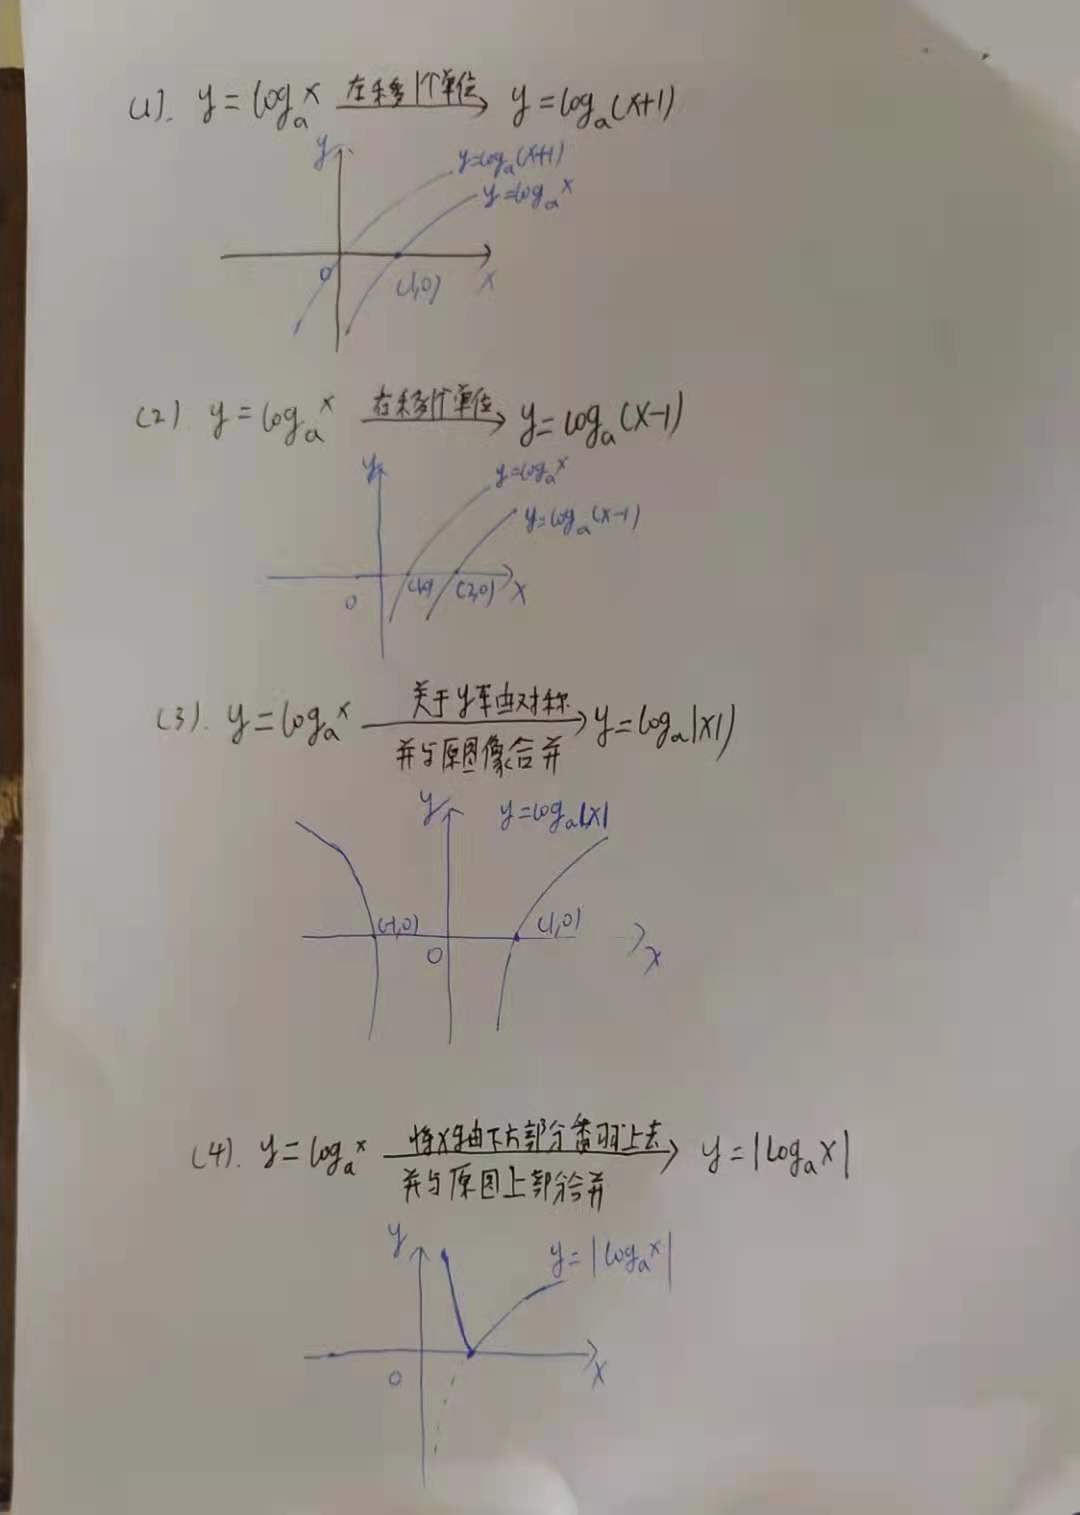 (1). y=logₐx 左移1个单位 y=logₐ(x+1)
y
y=logₐ(x+1)
y=logₐx
0 (1,0) x
(2) y=logₐx 右移1个单位 y=logₐ(x-1)
y
y=logₐx
y=logₐ(x-1)
0 (1,0) (2,0) x
(3). y=logₐx 关于y轴对称 y=logₐ|x|
并与原图像合并
y y=logₐ|x|
(-1,0) (1,0)
0 x
(4). y=logₐx 将x轴下方部分翻上去 y=|logₐx|
并与原图上部分合并
y
y=|logₐx|
0 x